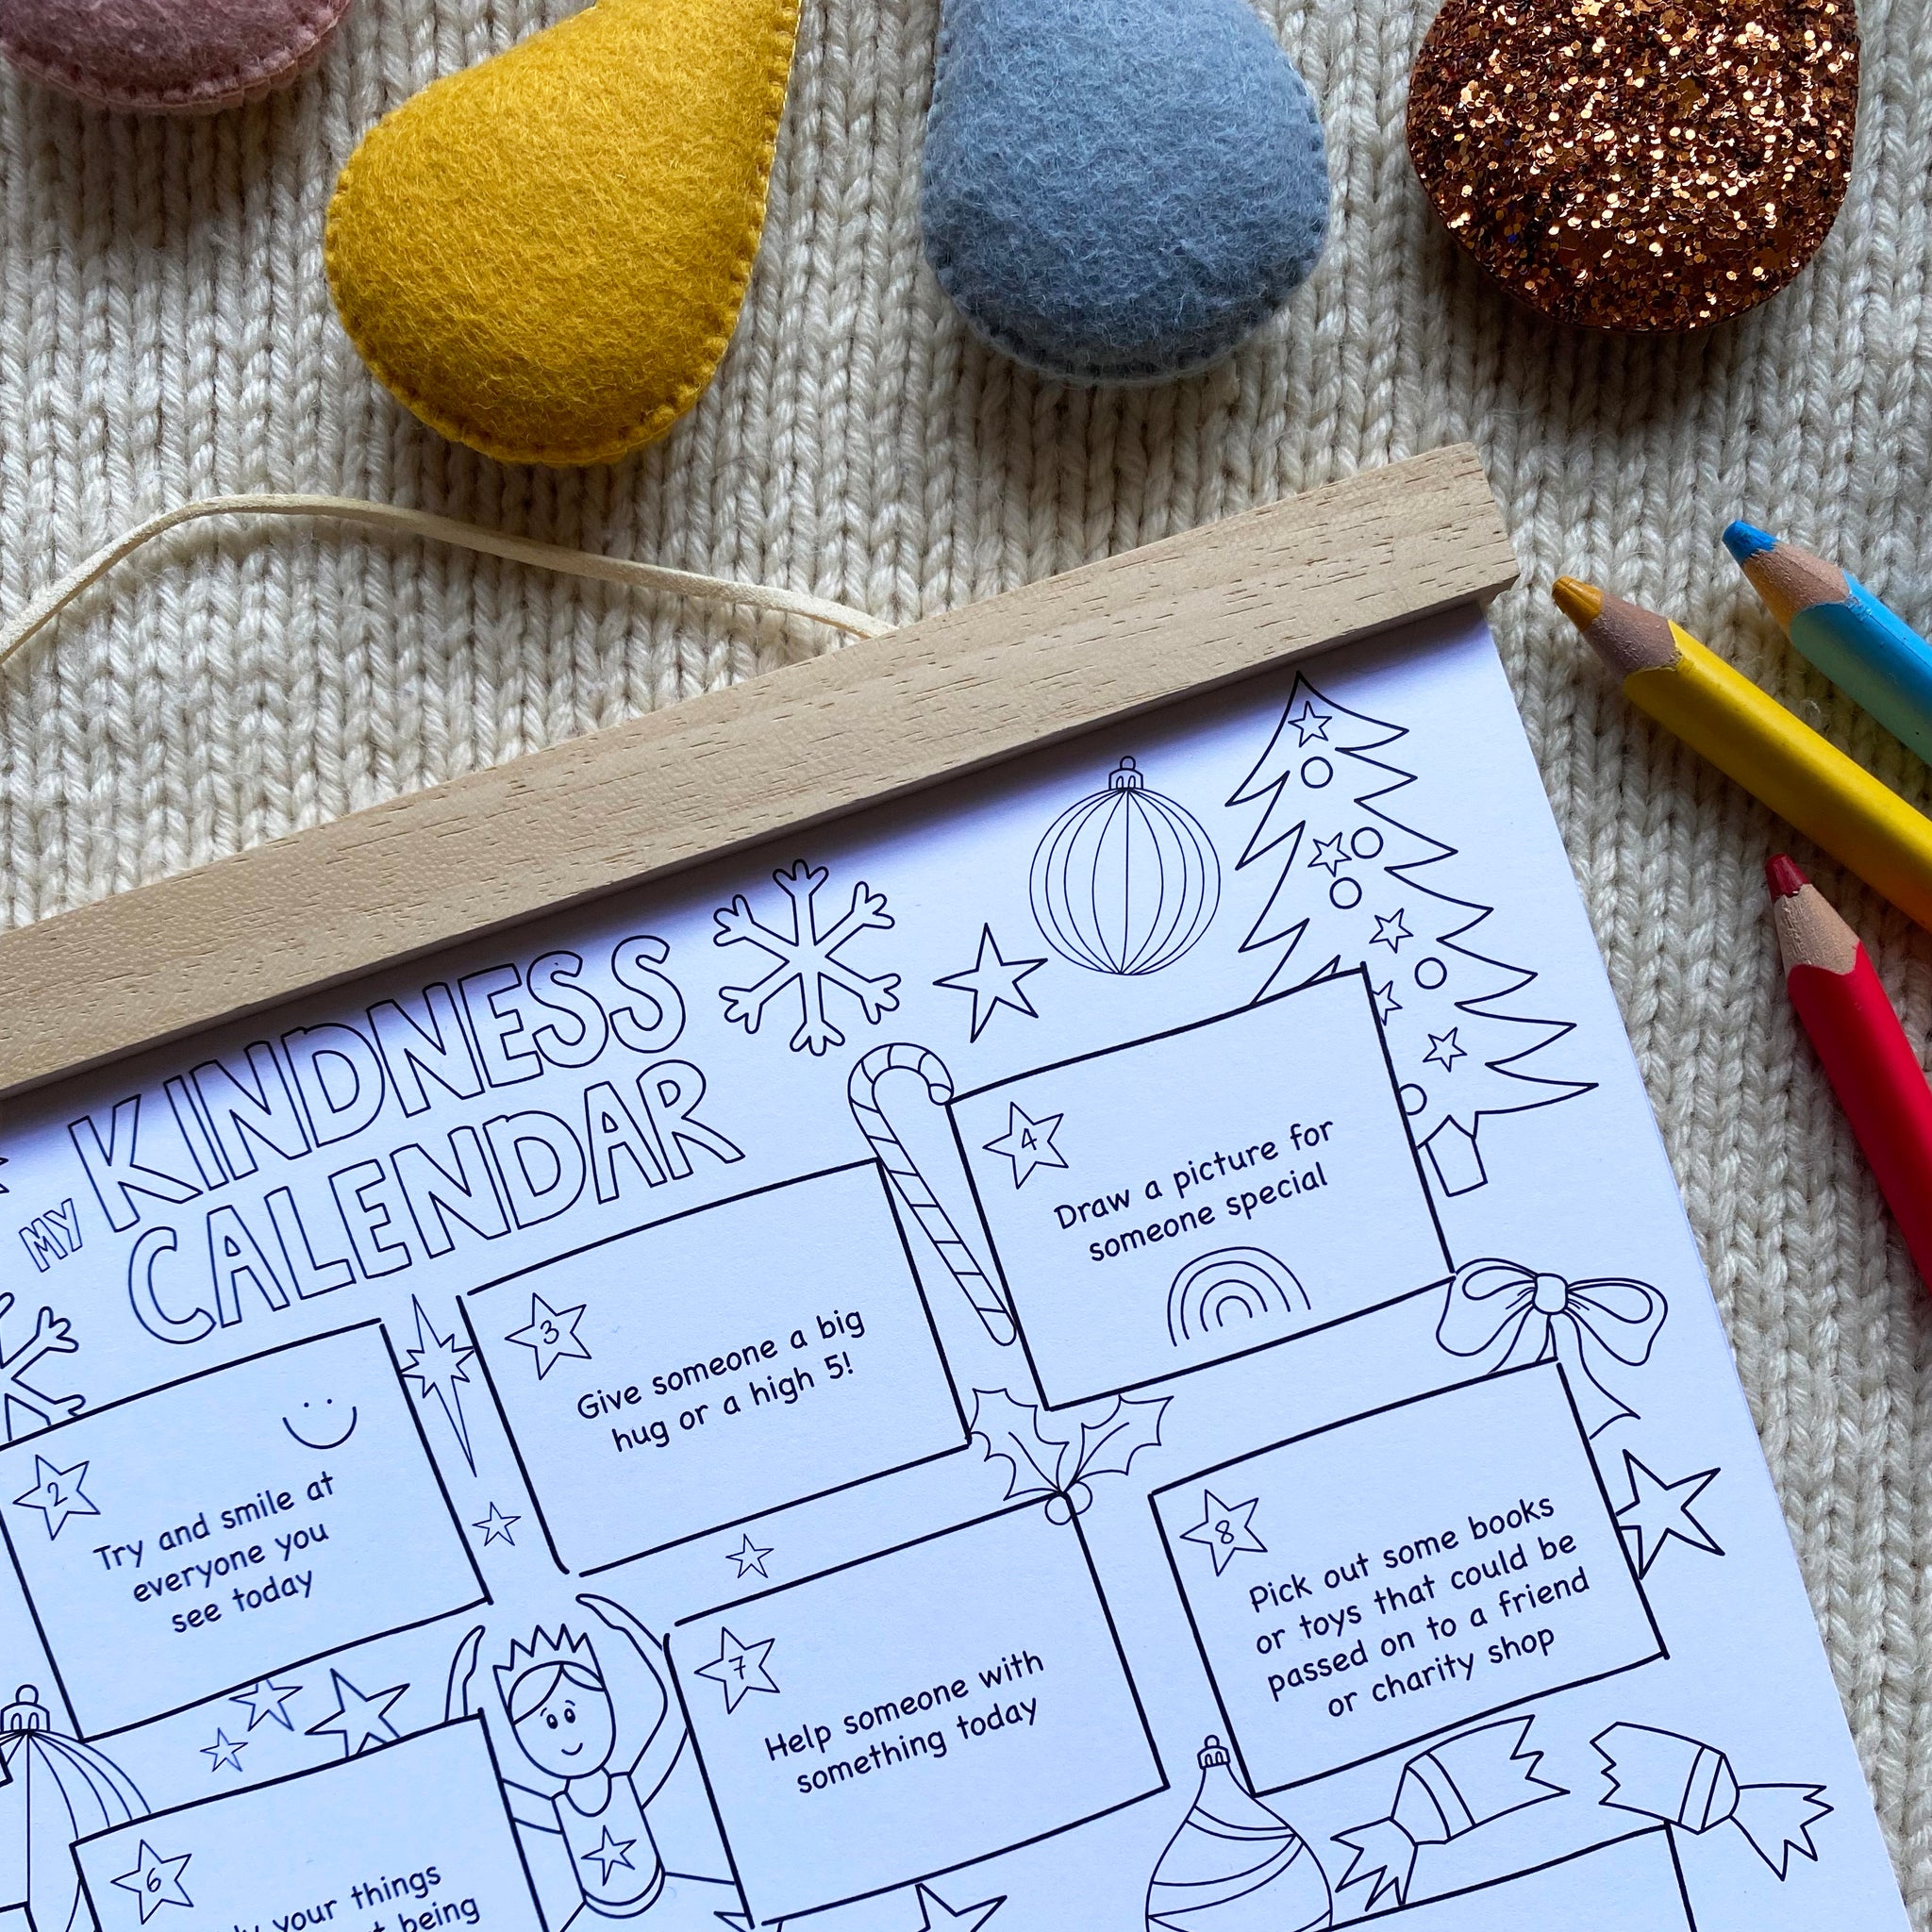 MY KINDNESS
CALENDAR
2
Try and smile at
everyone you
see today
3
Give someone a big
hug or a high 5!
4
Draw a picture for
someone special
6
your things
being
7
Help someone with
something today
8
Pick out some books
or toys that could be
passed on to a friend
or charity shop